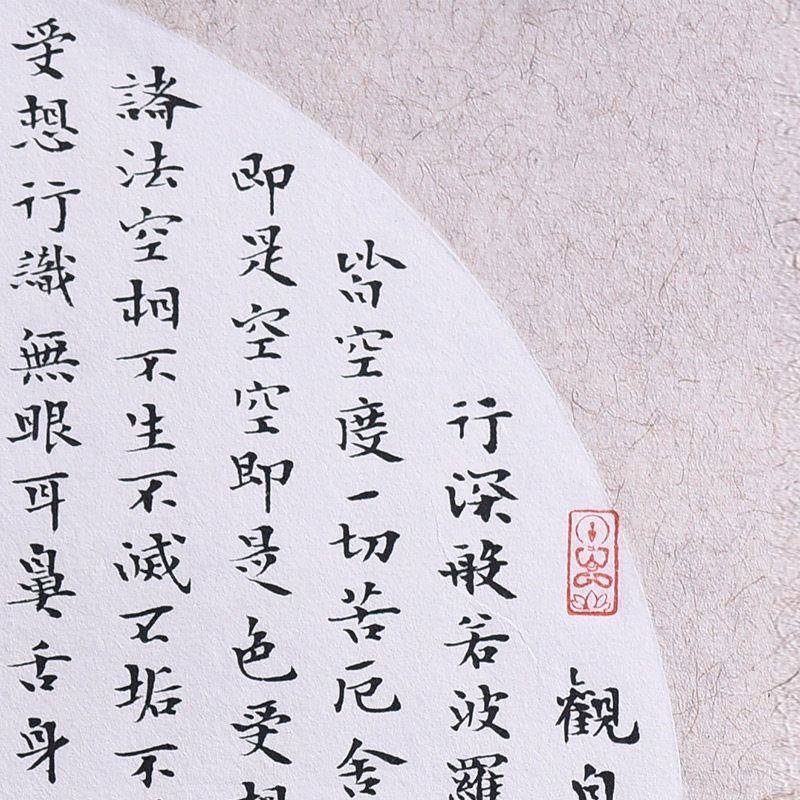 觀自
行深般若波羅
皆空度一切苦厄舍
即是空空即是色受想
諸法空相不生不滅不垢不
受想行識無眼耳鼻舌身